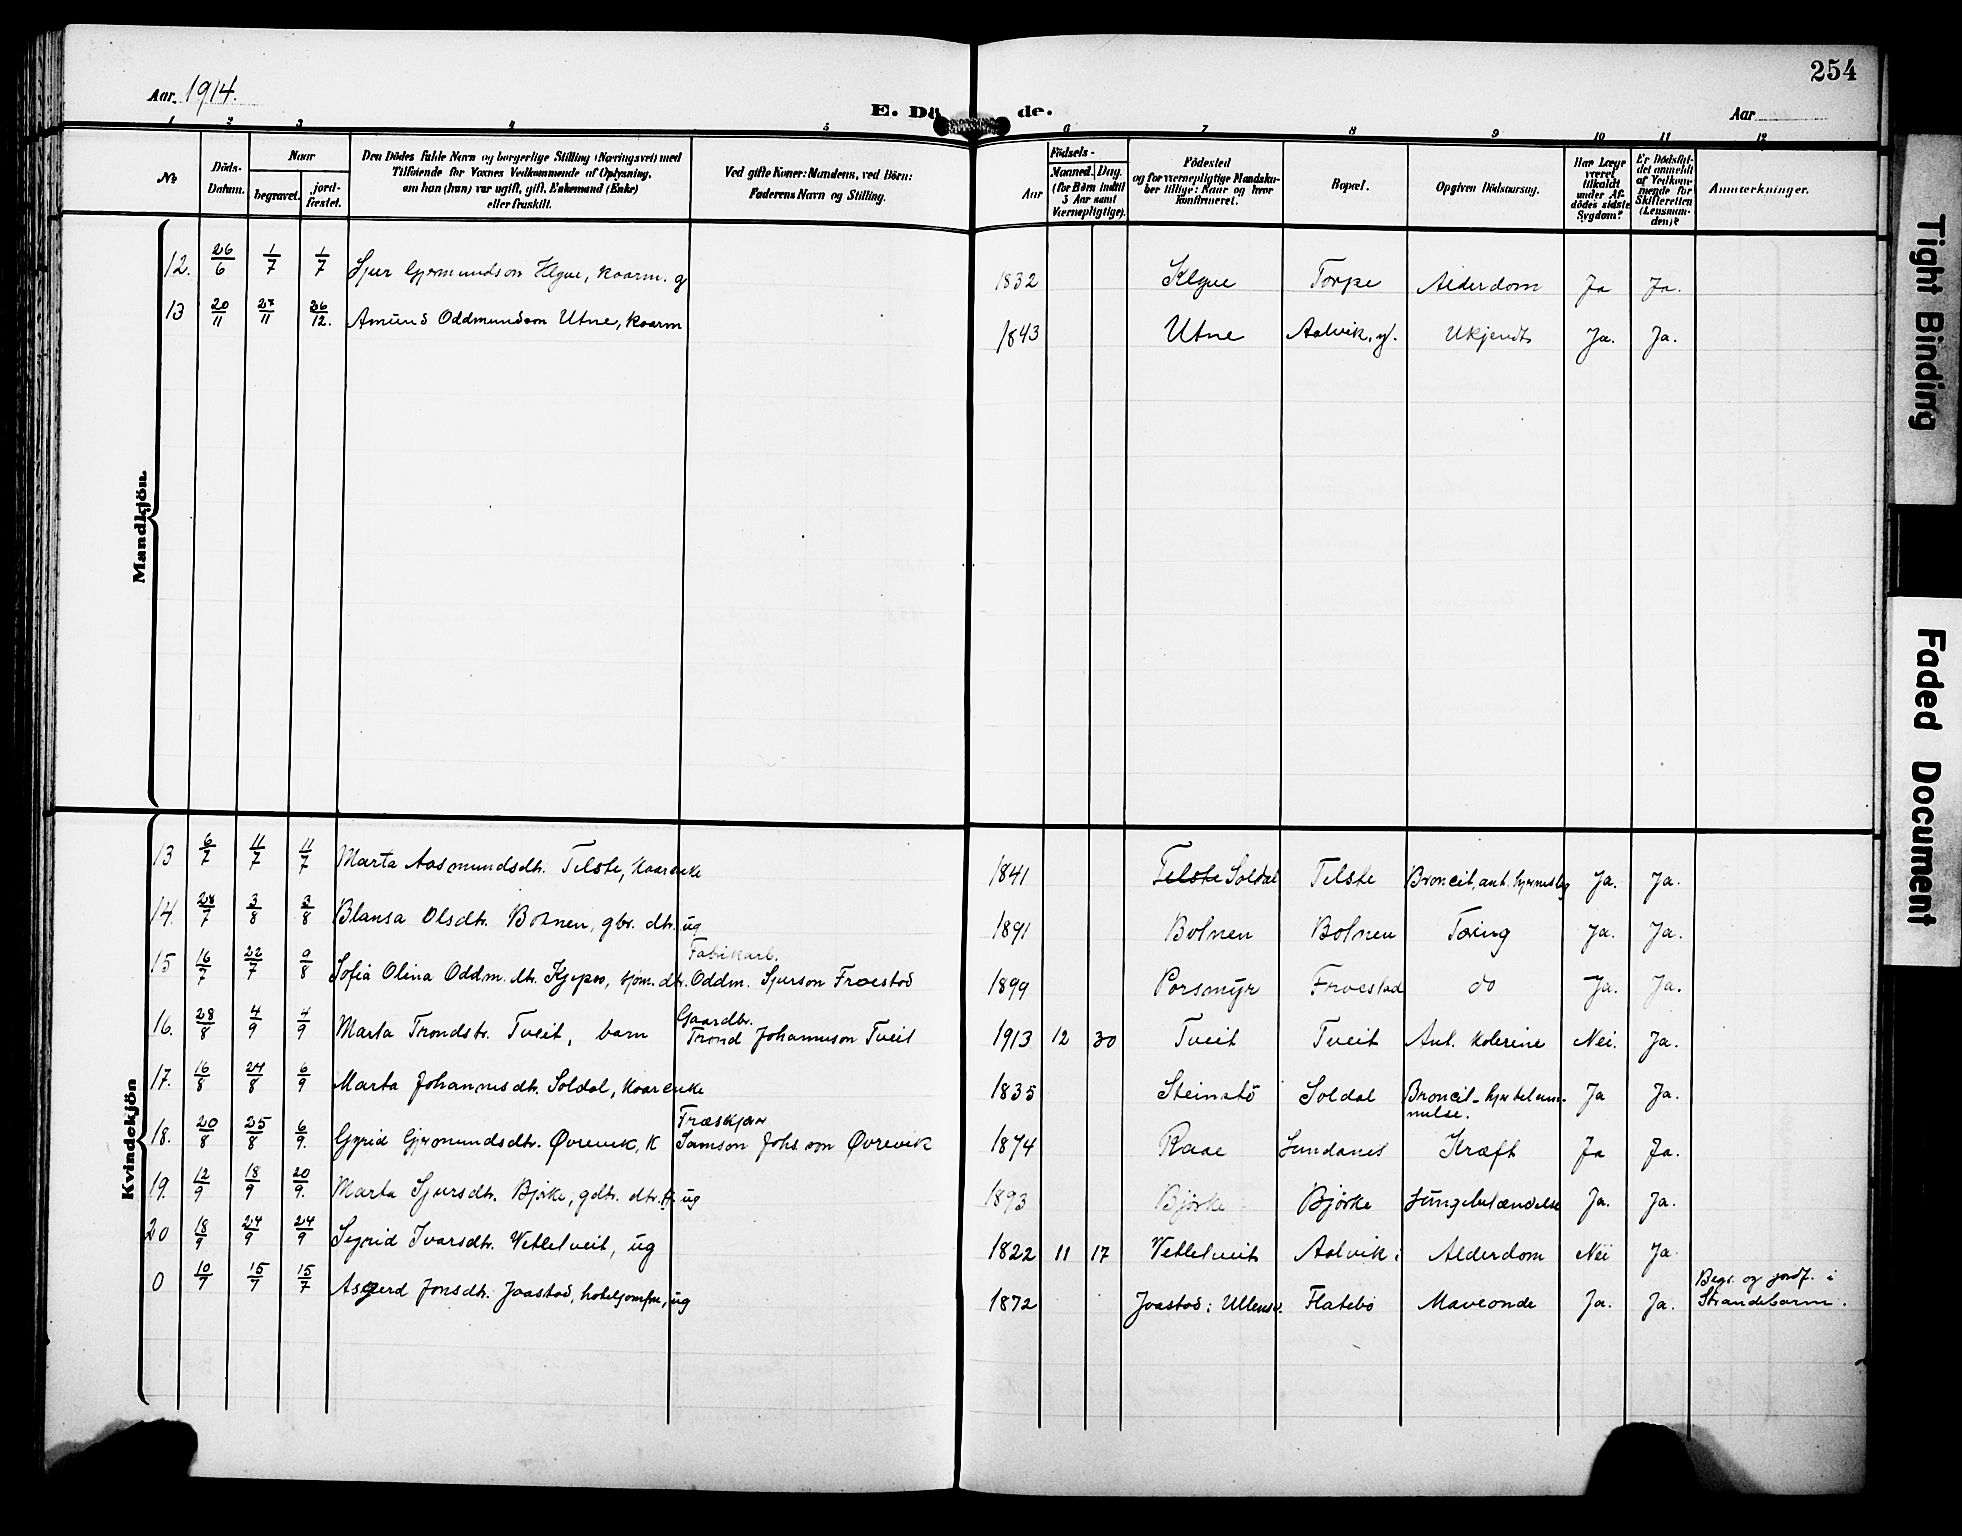 254
Aar 1914.
E. Döde.
Aar
1 2 3 4 5 6 7 8 9 10 11 12
No
Döds-Datum.
Naar
begravet.
jord-fæstet.
Den Dödes fulde Navn og borgerlige Stilling (Næringsvei) med
Tilföiende for Voxnes Vedkommende af Oplysning,
om han (hun) var ugift, gift, Enkemand (Enke)
eller fraskilt.
Ved gifte Koner: Mandens, ved Börn:
Faderens Navn og Stilling.
Födsels-
Aar
Maaned. Dag.
(for Börn indtil
5 Aar samt
Værnepligtige).
Födested
og for værnepligtige Mandska-
ber tillige: Naar og hvor
konfirmeret.
Bopæl.
Opgiven Dödsaarsag.
Har Læge
været
tilkaldt
under Af-
dödes sidste
Sygdom?
Er Dödsfal-
det anmeldt
af Vedkom-
mende for
Skifteretten
(Lensman-
den)?
Anmærkninger.
Mandkjön.
12. 26/6 1/7 1/7 Sjur Gjermundson Klyve, kaarm. g 1832 Klyve Torpe Alderdom Ja Ja.
13 20/11 27/11 26/12. Amund Oddmundson Utne, kaarm 1843 Utne Aalvik, y. Ukjendt Ja. Ja.
Kvindekjön
13 6/7 11/7 11/7 Marta Aasmundsdtr. Telste, kaarenke 1841 Telste Soldal Telste Broncit, ant. hjerneslag Ja. Ja.
14. 28/7 3/8 3/8 Olsdtr. Botnen, gbr. dtr. ug 1891 Botnen Botnen Tæring Ja. Ja.
Fabrikarb.
15 16/7 22/7 9/8 Sofia Olina Oddm. dtr. dtr. Oddm. Sjurson Froestad 1899 Porsmyr Froestad do Ja. Ja.
Gaardbr.
16. 28/8 4/9 4/9 Marta Trondsdtr. Tveit, barn Trond Johanneson Tveit 1913 12 30 Tveit Tveit Ant. kolerine Nei. Ja.
17. 16/8 24/8 6/9 Marta Johannesdtr. Soldal, kaarenke 1835 Steinstö Soldal Broncit - hjertelam-
melse. Ja Ja.
Fræskjær
18. 20/8 25/8 6/9. Gyrid Gjermundsdtr. Øvrevik, K Samson Johs.son Øvrevik 1874 Raae Sundanes Kræft Ja Ja.
19. 12/9 18/9 20/9. Marta Sjursdtr. Bjørke, gdbr. dtr. ug 1893 Bjørke Bjørke Lungebetændelse Ja. Ja.
20 18/9 24/9 24/9 Sigrid Ivarsdtr. Vetletveit, ug 1822 11 17 Vetletveit Aalvik i Alderdom Nei Ja
0 10/7 15/7 15/7 Asgerd Jonsdtr. Jaastad, hoteljomfru, ug 1872 Jaastad i Ullensv. Flatebö Maveonde Ja. Ja. Begr. og jordf. i
Strandebarm.
Tight Binding
Faded Document